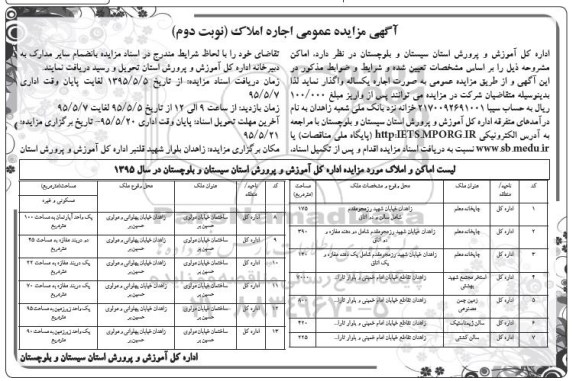 آگهی مزایده عمومی اجاره املاک (نوبت دوم)
اداره کل آموزش و پرورش استان سیستان و بلوچستان در نظر دارد، اماکن
مشروحه ذیل را بر اساس مشخصات تعیین شده و شرایط و ضوابط مذکور در
این آگهی و از طریق مزایده عمومی به صورت اجاره یکساله واگذار نماید لذا
بدینوسیله متقاضیان شرکت در مزایده می توانند پس از واریز مبلغ ۱۰۰/۰۰۰
ریال به حساب سیبا ۲۱۷۰۰۹۲۶۹۱۰۰۱ خزانه نزد بانک ملی شعبه زاهدان به نام
درآمدهای متفرقه اداره کل آموزش و پرورش استان سیستان و بلوچستان با مراجعه
به آدرس الکترونیکی http:IETS.MPORG.IR (پایگاه ملی مناقصات) یا
www.sb.medu.ir نسبت به دریافت اسناد مزایده اقدام و پس از تکمیل اسناد،
تقاضای خود را با لحاظ شرایط مندرج در اسناد مزایده بانضمام سایر مدارک به
دبیرخانه اداره کل آموزش و پرورش استان تحویل و رسید دریافت نمایند.
زمان دریافت اسناد مزایده: از تاریخ ۱۳۹۵/۵/۵ لغایت پایان وقت اداری
۹۵/۵/۷
زمان بازدید: از ساعت ۹ الی ۱۲ از تاریخ ۹۵/۵/۵ لغایت ۹۵/۵/۷
آخرین مهلت تحویل اسناد: پایان وقت اداری ۹۵/۵/۲۰- تاریخ برگزاری مزایده:
۹۵/۵/۲۱
مکان برگزاری مزایده: زاهدان بلوار شهید قلنبر اداره کل آموزش و پرورش استان
لیست اماکن و املاک مورد مزایده اداره کل آموزش و پرورش استان سیستان و بلوچستان در سال ۱۳۹۵
کد ناحیه / منطقه عنوان ملک محل وقوع و مشخصات ملک مساحت (مترمربع)
۱ اداره کل چاپخانه معلم زاهدان خیابان شهید رزمجومقدم شامل سالن و دو اتاق ۱۷۵
۲ اداره کل چاپخانه معلم زاهدان خیابان شهید رزمجومقدم شامل دو دهنه مغازه و دو اتاق ۳۹۰
۳ اداره کل چاپخانه معلم زاهدان خیابان شهید رزمجومقدم شامل یک دهنه مغازه و یک اتاق ۱۳۰
۴ اداره کل استخر مجتمع شهید بهشتی زاهدان تقاطع خیابان امام خمینی و بلوار ثارا... ۷۰۰۰
۵ اداره کل زمین چمن مصنوعی زاهدان تقاطع خیابان امام خمینی و بلوار ثارا... ۸۰۰
۶ اداره کل سالن ژیمناستیک زاهدان تقاطع خیابان امام خمینی و بلوار ثارا... ۴۲۰
۷ اداره کل سالن کشتی زاهدان تقاطع خیابان امام خمینی و بلوار ثارا... ۲۲۵
کد ناحیه / منطقه عنوان ملک محل وقوع ملک مساحت (مترمربع) مسکونی و غیره
۸ اداره کل ساختمان خیابان مولوی زاهدان خیابان پهلوانی و مولوی حسین بر یک واحد آپارتمان به مساحت ۱۰۰ مترمربع
۹ اداره کل ساختمان خیابان مولوی حسین بر زاهدان خیابان پهلوانی و مولوی حسین بر دو دربند مغازه به مساحت ۴۵ مترمربع
۱۰ اداره کل ساختمان خیابان مولوی حسین بر زاهدان خیابان پهلوانی و مولوی حسین بر یک دربند مغازه به مساحت ۲۲ مترمربع
۱۱ اداره کل ساختمان خیابان مولوی حسین بر زاهدان خیابان پهلوانی و مولوی حسین بر یک دربند مغازه به مساحت ۷۰ مترمربع
۱۲ اداره کل ساختمان خیابان مولوی حسین بر زاهدان خیابان پهلوانی و مولوی حسین بر یک واحد زیرزمین به مساحت ۹۵ مترمربع
۱۳ اداره کل ساختمان خیابان مولوی حسین بر زاهدان خیابان پهلوانی و مولوی حسین بر یک واحد زیرزمین به مساحت ۹۰ مترمربع
اداره کل آموزش و پرورش استان سیستان و بلوچستان